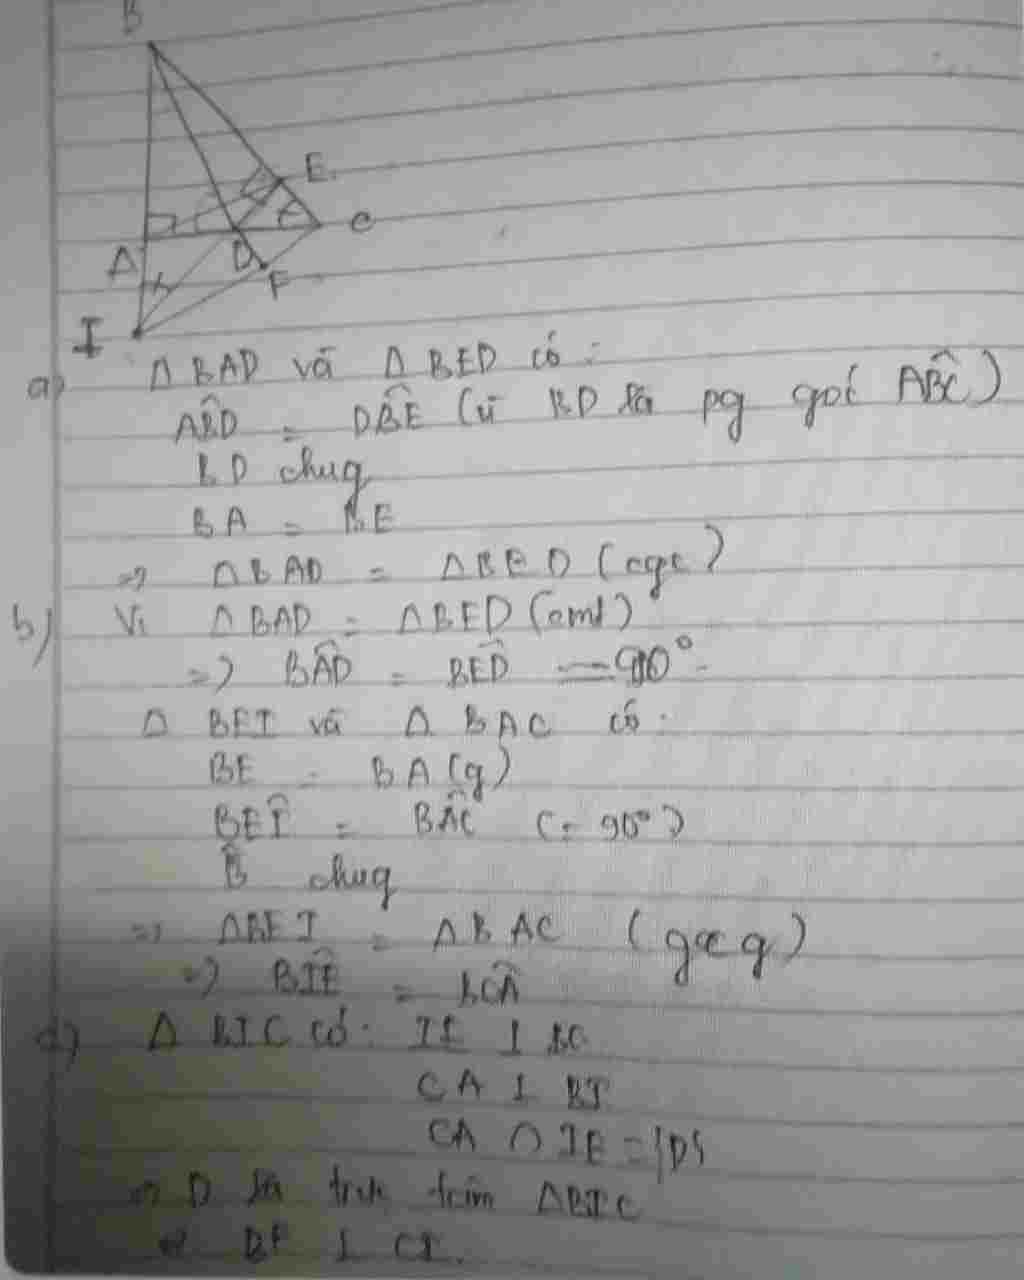 B
E
C
A
D
F
I
a) Δ BAD và Δ BED có :
AB̂D = DB̂E (vì BD là pg góc AB̂C)
BD chug
BA = BE
=> ΔBAD = ΔBED (cgc)
b) Vì ΔBAD = ΔBED (cmt)
=> BÂD = BÊD = 90°
Δ BEI và Δ BAC có :
BE = BA (g)
BÊI = BÂC (= 90°)
B̂ chug
=> ΔBEI = ΔBAC (gcg)
=> BÎE = BĈA
d) Δ BIC có : IE ⊥ BC
CA ⊥ BI
CA ∩ IE = {D}
=> D là trực tâm ΔBIC
=> BF ⊥ CI.